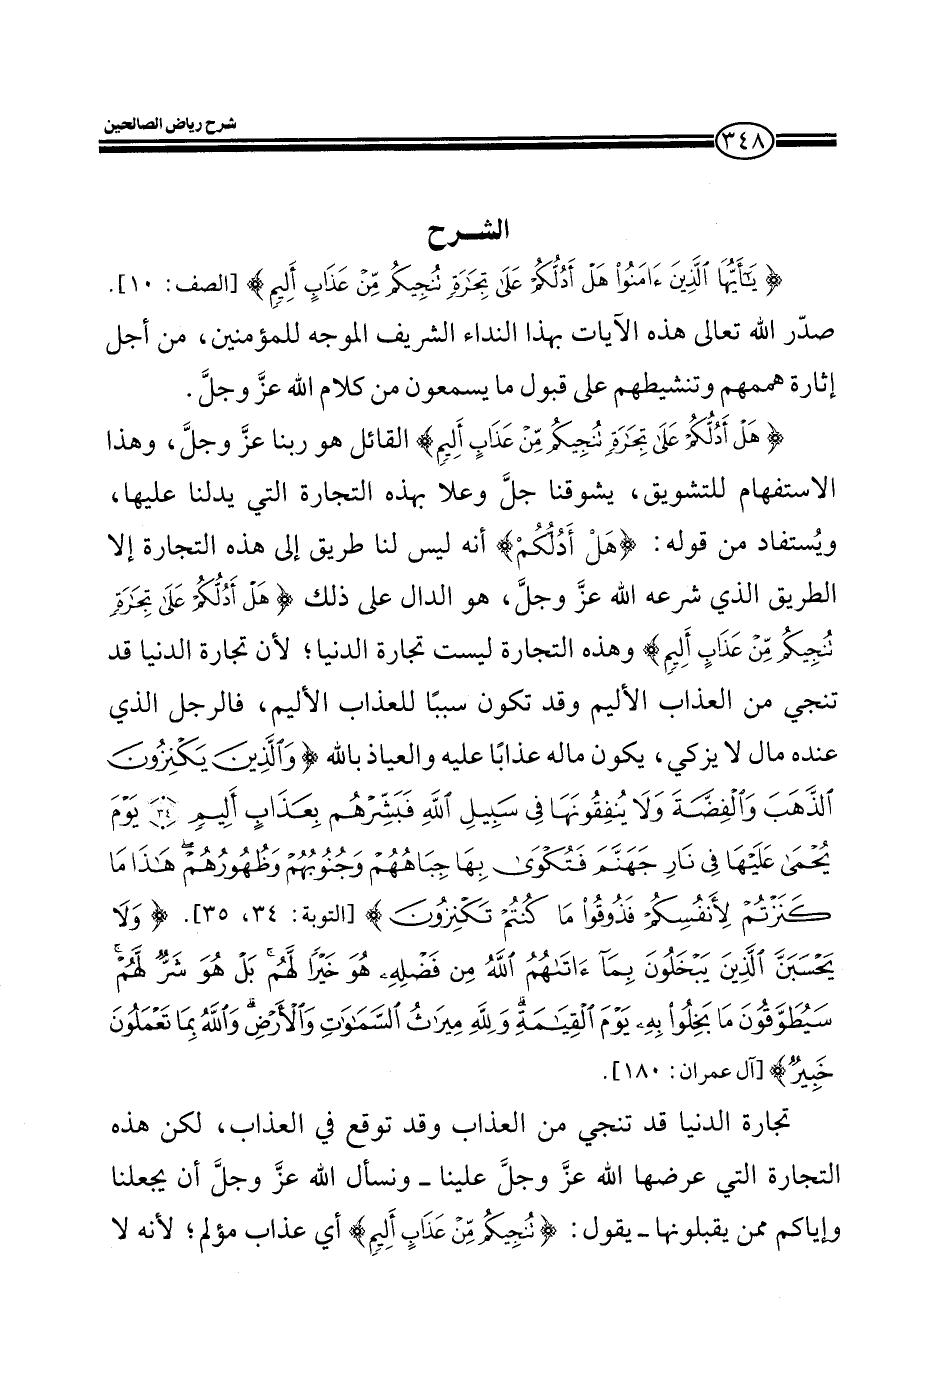 شرح رياض الصالحين
٣٤٨
الشـــرح
﴿ يَٰٓأَيُّهَا ٱلَّذِينَ ءَامَنُوا۟ هَلْ أَدُلُّكُمْ عَلَىٰ تِجَٰرَةٍ تُنجِيكُم مِّنْ عَذَابٍ أَلِيمٍ ﴾ [الصف: ١٠].
صدّر الله تعالى هذه الآيات بهذا النداء الشريف الموجه للمؤمنين، من أجل
إثارة هممهم وتنشيطهم على قبول ما يسمعون من كلام الله عزَّ وجلَّ.
﴿ هَلْ أَدُلُّكُمْ عَلَىٰ تِجَٰرَةٍ تُنجِيكُم مِّنْ عَذَابٍ أَلِيمٍ ﴾ القائل هو ربنا عزَّ وجلَّ، وهذا
الاستفهام للتشويق، يشوقنا جلَّ وعلا بهذه التجارة التي يدلنا عليها،
ويُستفاد من قوله: ﴿هَلْ أَدُلُّكُمْ﴾ أنه ليس لنا طريق إلى هذه التجارة إلا
الطريق الذي شرعه الله عزَّ وجلَّ، هو الدال على ذلك ﴿ هَلْ أَدُلُّكُمْ عَلَىٰ تِجَٰرَةٍ
تُنجِيكُم مِّنْ عَذَابٍ أَلِيمٍ ﴾ وهذه التجارة ليست تجارة الدنيا؛ لأن تجارة الدنيا قد
تنجي من العذاب الأليم وقد تكون سببًا للعذاب الأليم، فالرجل الذي
عنده مال لا يزكي، يكون ماله عذابًا عليه والعياذ بالله ﴿ وَٱلَّذِينَ يَكْنِزُونَ
ٱلذَّهَبَ وَٱلْفِضَّةَ وَلَا يُنفِقُونَهَا فِى سَبِيلِ ٱللَّهِ فَبَشِّرْهُم بِعَذَابٍ أَلِيمٍ ٣٤ يَوْمَ
يُحْمَىٰ عَلَيْهَا فِى نَارِ جَهَنَّمَ فَتُكْوَىٰ بِهَا جِبَاهُهُمْ وَجُنُوبُهُمْ وَظُهُورُهُمْ ۖ هَٰذَا مَا
كَنَزْتُمْ لِأَنفُسِكُمْ فَذُوقُوا۟ مَا كُنتُمْ تَكْنِزُونَ ﴾ [التوبة: ٣٤، ٣٥]. ﴿ وَلَا
يَحْسَبَنَّ ٱلَّذِينَ يَبْخَلُونَ بِمَآ ءَاتَىٰهُمُ ٱللَّهُ مِن فَضْلِهِۦ هُوَ خَيْرًا لَّهُم ۖ بَلْ هُوَ شَرٌّ لَّهُمْ ۖ
سَيُطَوَّقُونَ مَا بَخِلُوا۟ بِهِۦ يَوْمَ ٱلْقِيَٰمَةِ ۗ وَلِلَّهِ مِيرَٰثُ ٱلسَّمَٰوَٰتِ وَٱلْأَرْضِ ۗ وَٱللَّهُ بِمَا تَعْمَلُونَ
خَبِيرٌ ﴾ [آل عمران: ١٨٠].
تجارة الدنيا قد تنجي من العذاب وقد توقع في العذاب، لكن هذه
التجارة التي عرضها الله عزَّ وجلَّ علينا ـ ونسأل الله عزَّ وجلَّ أن يجعلنا
وإياكم ممن يقبلونها ـ يقول: ﴿ تُنجِيكُم مِّنْ عَذَابٍ أَلِيمٍ ﴾ أي عذاب مؤلم؛ لأنه لا